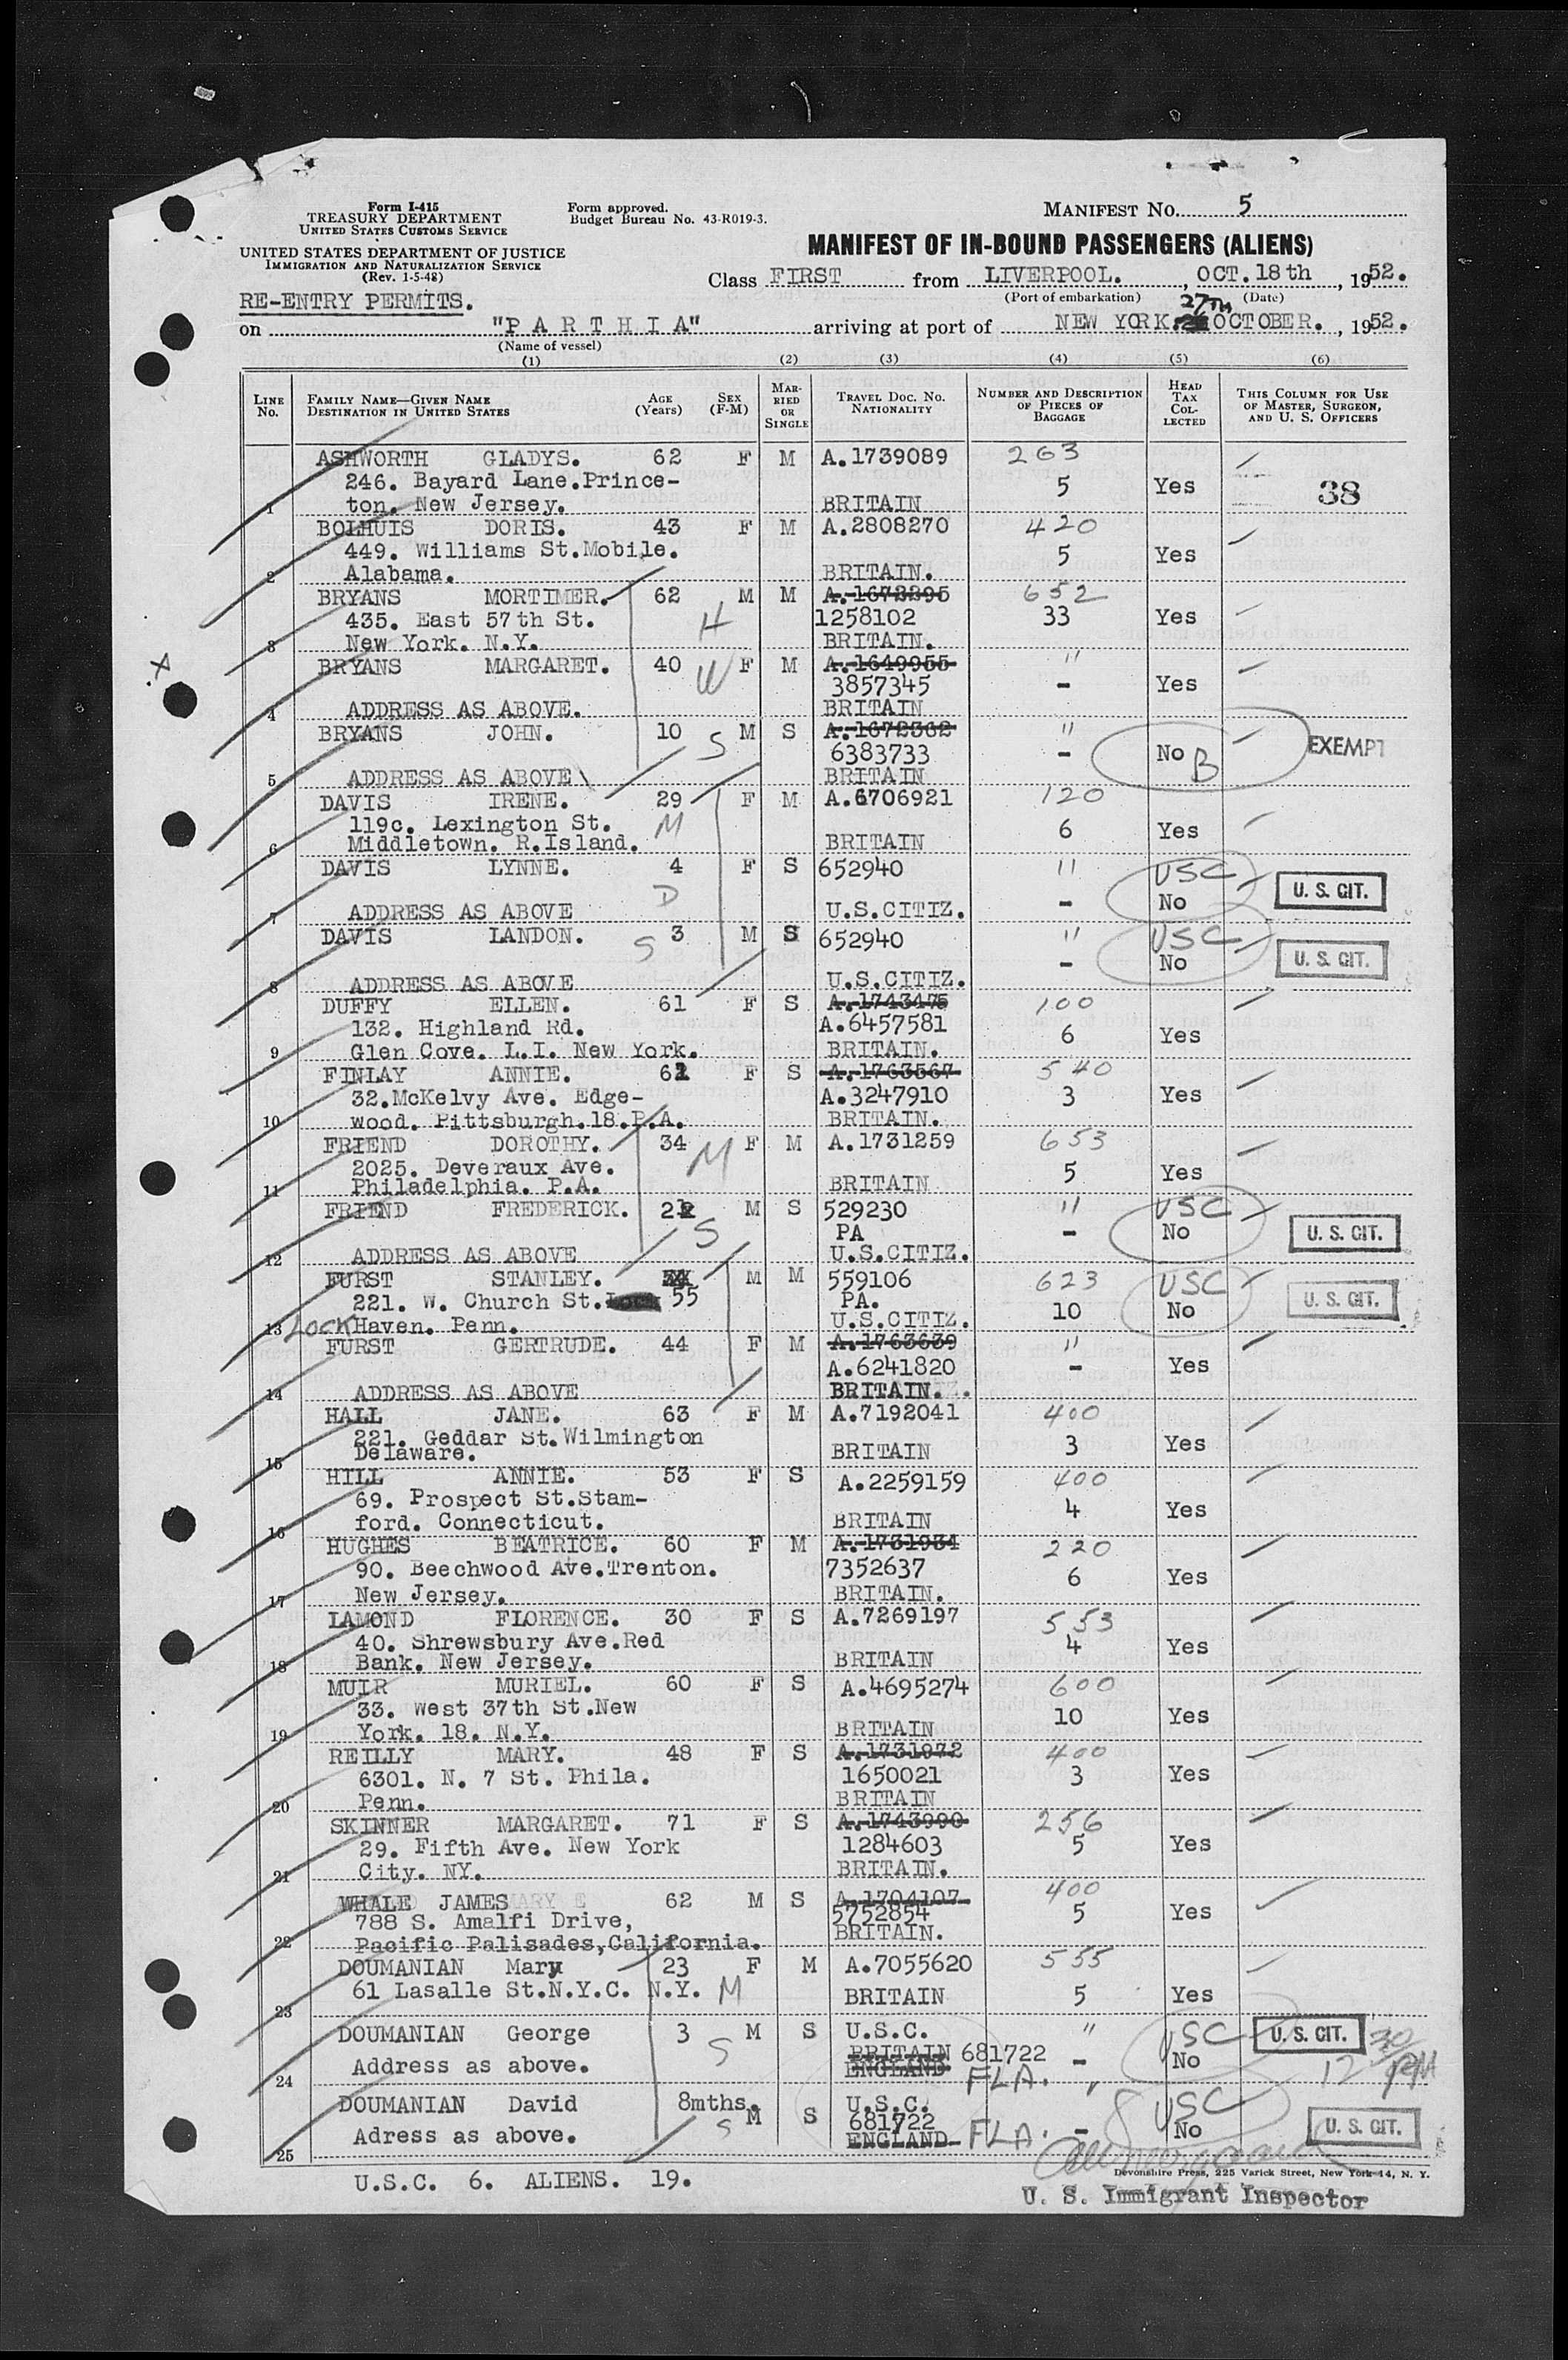 Form I-415
TREASURY DEPARTMENT
UNITED STATES CUSTOMS SERVICE
Form approved.
Budget Bureau No. 43-R019-3.
MANIFEST NO. 5
UNITED STATES DEPARTMENT OF JUSTICE
IMMIGRATION AND NATURALIZATION SERVICE
(Rev. 1-5-48)
MANIFEST OF IN-BOUND PASSENGERS (ALIENS)
Class FIRST from LIVERPOOL. , OCT.18th , 1952.
(Port of embarkation) (Date)
RE-ENTRY PERMITS.
on "P A R T H I A" arriving at port of NEW YORK. 27TH OCTOBER. , 1952.
(Name of vessel)
(1) (2) (3) (4) (5) (6)
LINE No. FAMILY NAME—GIVEN NAME DESTINATION IN UNITED STATES AGE (Years) SEX (F-M) MARRIED OR SINGLE TRAVEL DOC. NO. NATIONALITY NUMBER AND DESCRIPTION OF PIECES OF BAGGAGE HEAD TAX COLLECTED THIS COLUMN FOR USE OF MASTER, SURGEON, AND U. S. OFFICERS
ASHWORTH GLADYS. 62 F M A.1739089 263
246. Bayard Lane.Prince- 5 Yes 38
1 ton. New Jersey. BRITAIN
BOLHUIS DORIS. 43 F M A.2808270 420
449. Williams St.Mobile. 5 Yes
2 Alabama. BRITAIN.
BRYANS MORTIMER. 62 M M A.1672295 652
435. East 57th St. H 1258102 33 Yes
3 New York. N.Y. BRITAIN.
BRYANS MARGARET. 40 W F M A.1649955 "
3857345 - Yes
4 ADDRESS AS ABOVE. BRITAIN
BRYANS JOHN. 10 S M S A.1672362 "
6383733 - No B EXEMPT
5 ADDRESS AS ABOVE BRITAIN
DAVIS IRENE. 29 F M A.6706921 120
119c. Lexington St. M 6 Yes
6 Middletown. R.Island. BRITAIN
DAVIS LYNNE. 4 F S 652940 " USC
D - No U. S. CIT.
7 ADDRESS AS ABOVE U.S.CITIZ.
DAVIS LANDON. S 3 M S 652940 " USC
- No U. S. CIT.
8 ADDRESS AS ABOVE U.S.CITIZ.
DUFFY ELLEN. 61 F S A.1743475 100
132. Highland Rd. A.6457581 6 Yes
9 Glen Cove. L.I. New York. BRITAIN.
FINLAY ANNIE. 61 F S A.1763567 540
32.McKelvy Ave. Edge- A.3247910 3 Yes
10 wood. Pittsburgh.18.P.A. BRITAIN.
FRIEND DOROTHY. 34 M F M A.1731259 653
2025. Deveraux Ave. 5 Yes
11 Philadelphia. P.A. BRITAIN
FRIEND FREDERICK. M S 529230 " USC
S PA - No U. S. CIT.
12 ADDRESS AS ABOVE U.S.CITIZ.
FURST STANLEY. M M 559106 623 USC
221. W. Church St. 55 PA. 10 No U. S. CIT.
13 LOCK Haven. Penn. U.S.CITIZ.
FURST GERTRUDE. 44 F M A.1763639 "
A.6241820 - Yes
14 ADDRESS AS ABOVE BRITAIN.
HALL JANE. 63 F M A.7192041 400
221. Geddar St.Wilmington 3 Yes
15 Delaware. BRITAIN
HILL ANNIE. 53 F S A.2259159 400
69. Prospect St.Stam- 4 Yes
16 ford. Connecticut. BRITAIN
HUGHES BEATRICE. 60 F M A.1731934 220
90. Beechwood Ave.Trenton. 7352637 6 Yes
17 New Jersey. BRITAIN.
LAMOND FLORENCE. 30 F S A.7269197 553
40. Shrewsbury Ave.Red 4 Yes
18 Bank. New Jersey. BRITAIN
MUIR MURIEL. 60 F S A.4695274 600
33. West 37th St.New 10 Yes
19 York. 18. N.Y. BRITAIN
REILLY MARY. 48 F S A.1731972 400
6301. N. 7 St. Phila. 1650021 3 Yes
20 Penn. BRITAIN
SKINNER MARGARET. 71 F S A.1743990 256
29. Fifth Ave. New York 1284603 5 Yes
21 City. NY. BRITAIN.
WHALE JAMES 62 M S A.1704107 400
788 S. Amalfi Drive, 5752854 5 Yes
22 Pacific Palisades,California. BRITAIN.
DOUMANIAN Mary 23 F M A.7055620 555
61 Lasalle St.N.Y.C. N.Y. M BRITAIN 5 Yes
23
DOUMANIAN George 3 M S U.S.C. " USC U. S. CIT.
Address as above. S BRITAIN 681722 - No 12 30 PM
24 ENGLAND FLA. "
DOUMANIAN David 8mths. M S U.S.C. USC
Adress as above. S 681722 FLA. - No U. S. CIT.
25 ENGLAND
U.S.C. 6. ALIENS. 19.
Devonshire Press, 225 Varick Street, New York 14, N. Y.
U. S. Immigrant Inspector